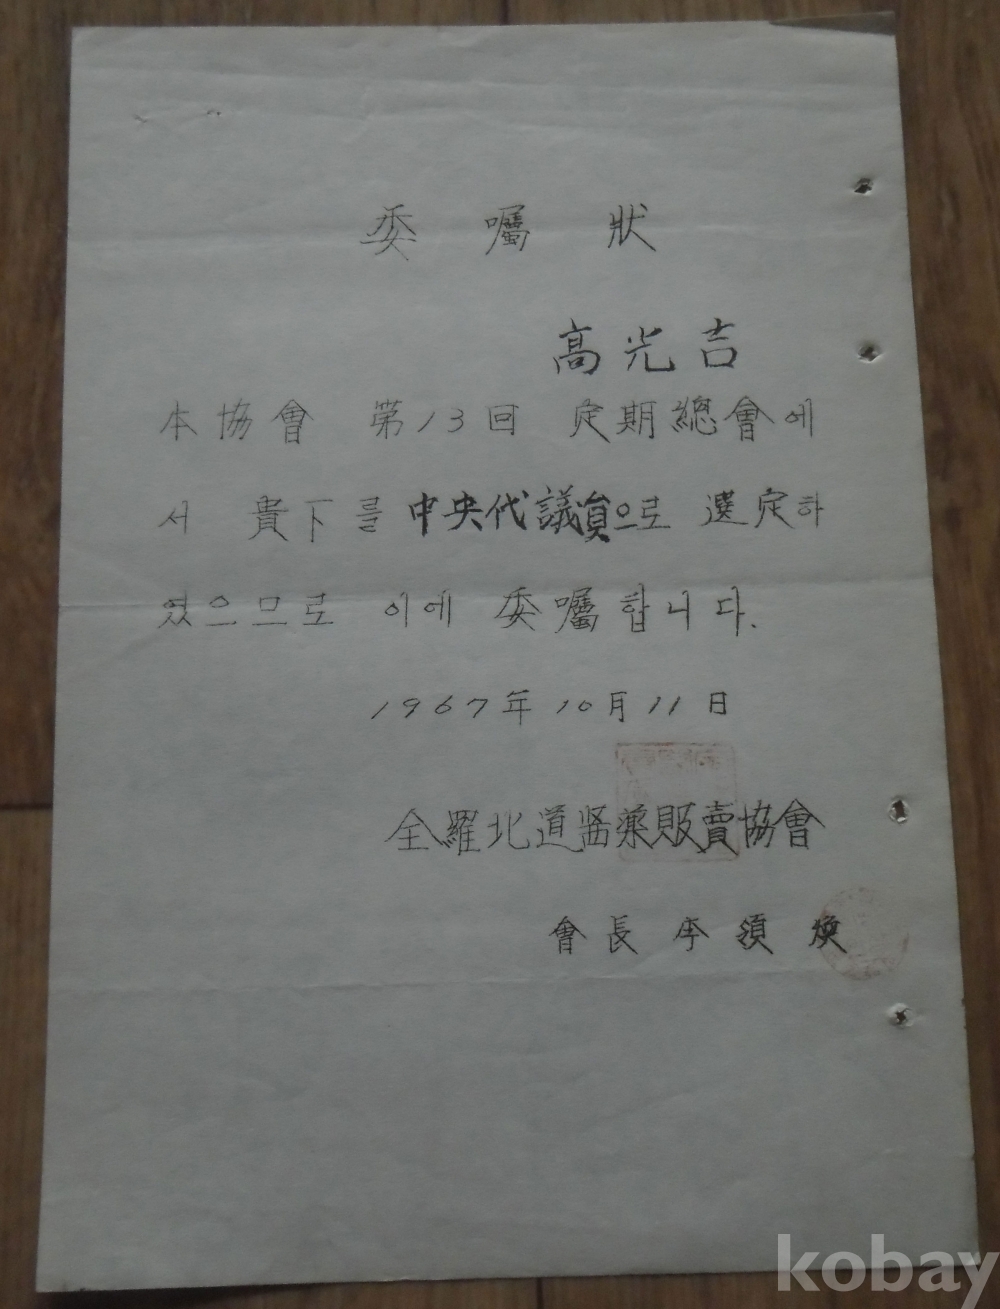 委囑狀
高光吉
本協會 第13回 定期總會에
서 貴下를 中央代議員으로 選定하
였으므로 이에 委囑합니다.
1967年 10月 11日
全羅北道醫藥販賣協會
會長 李須煥
kobay